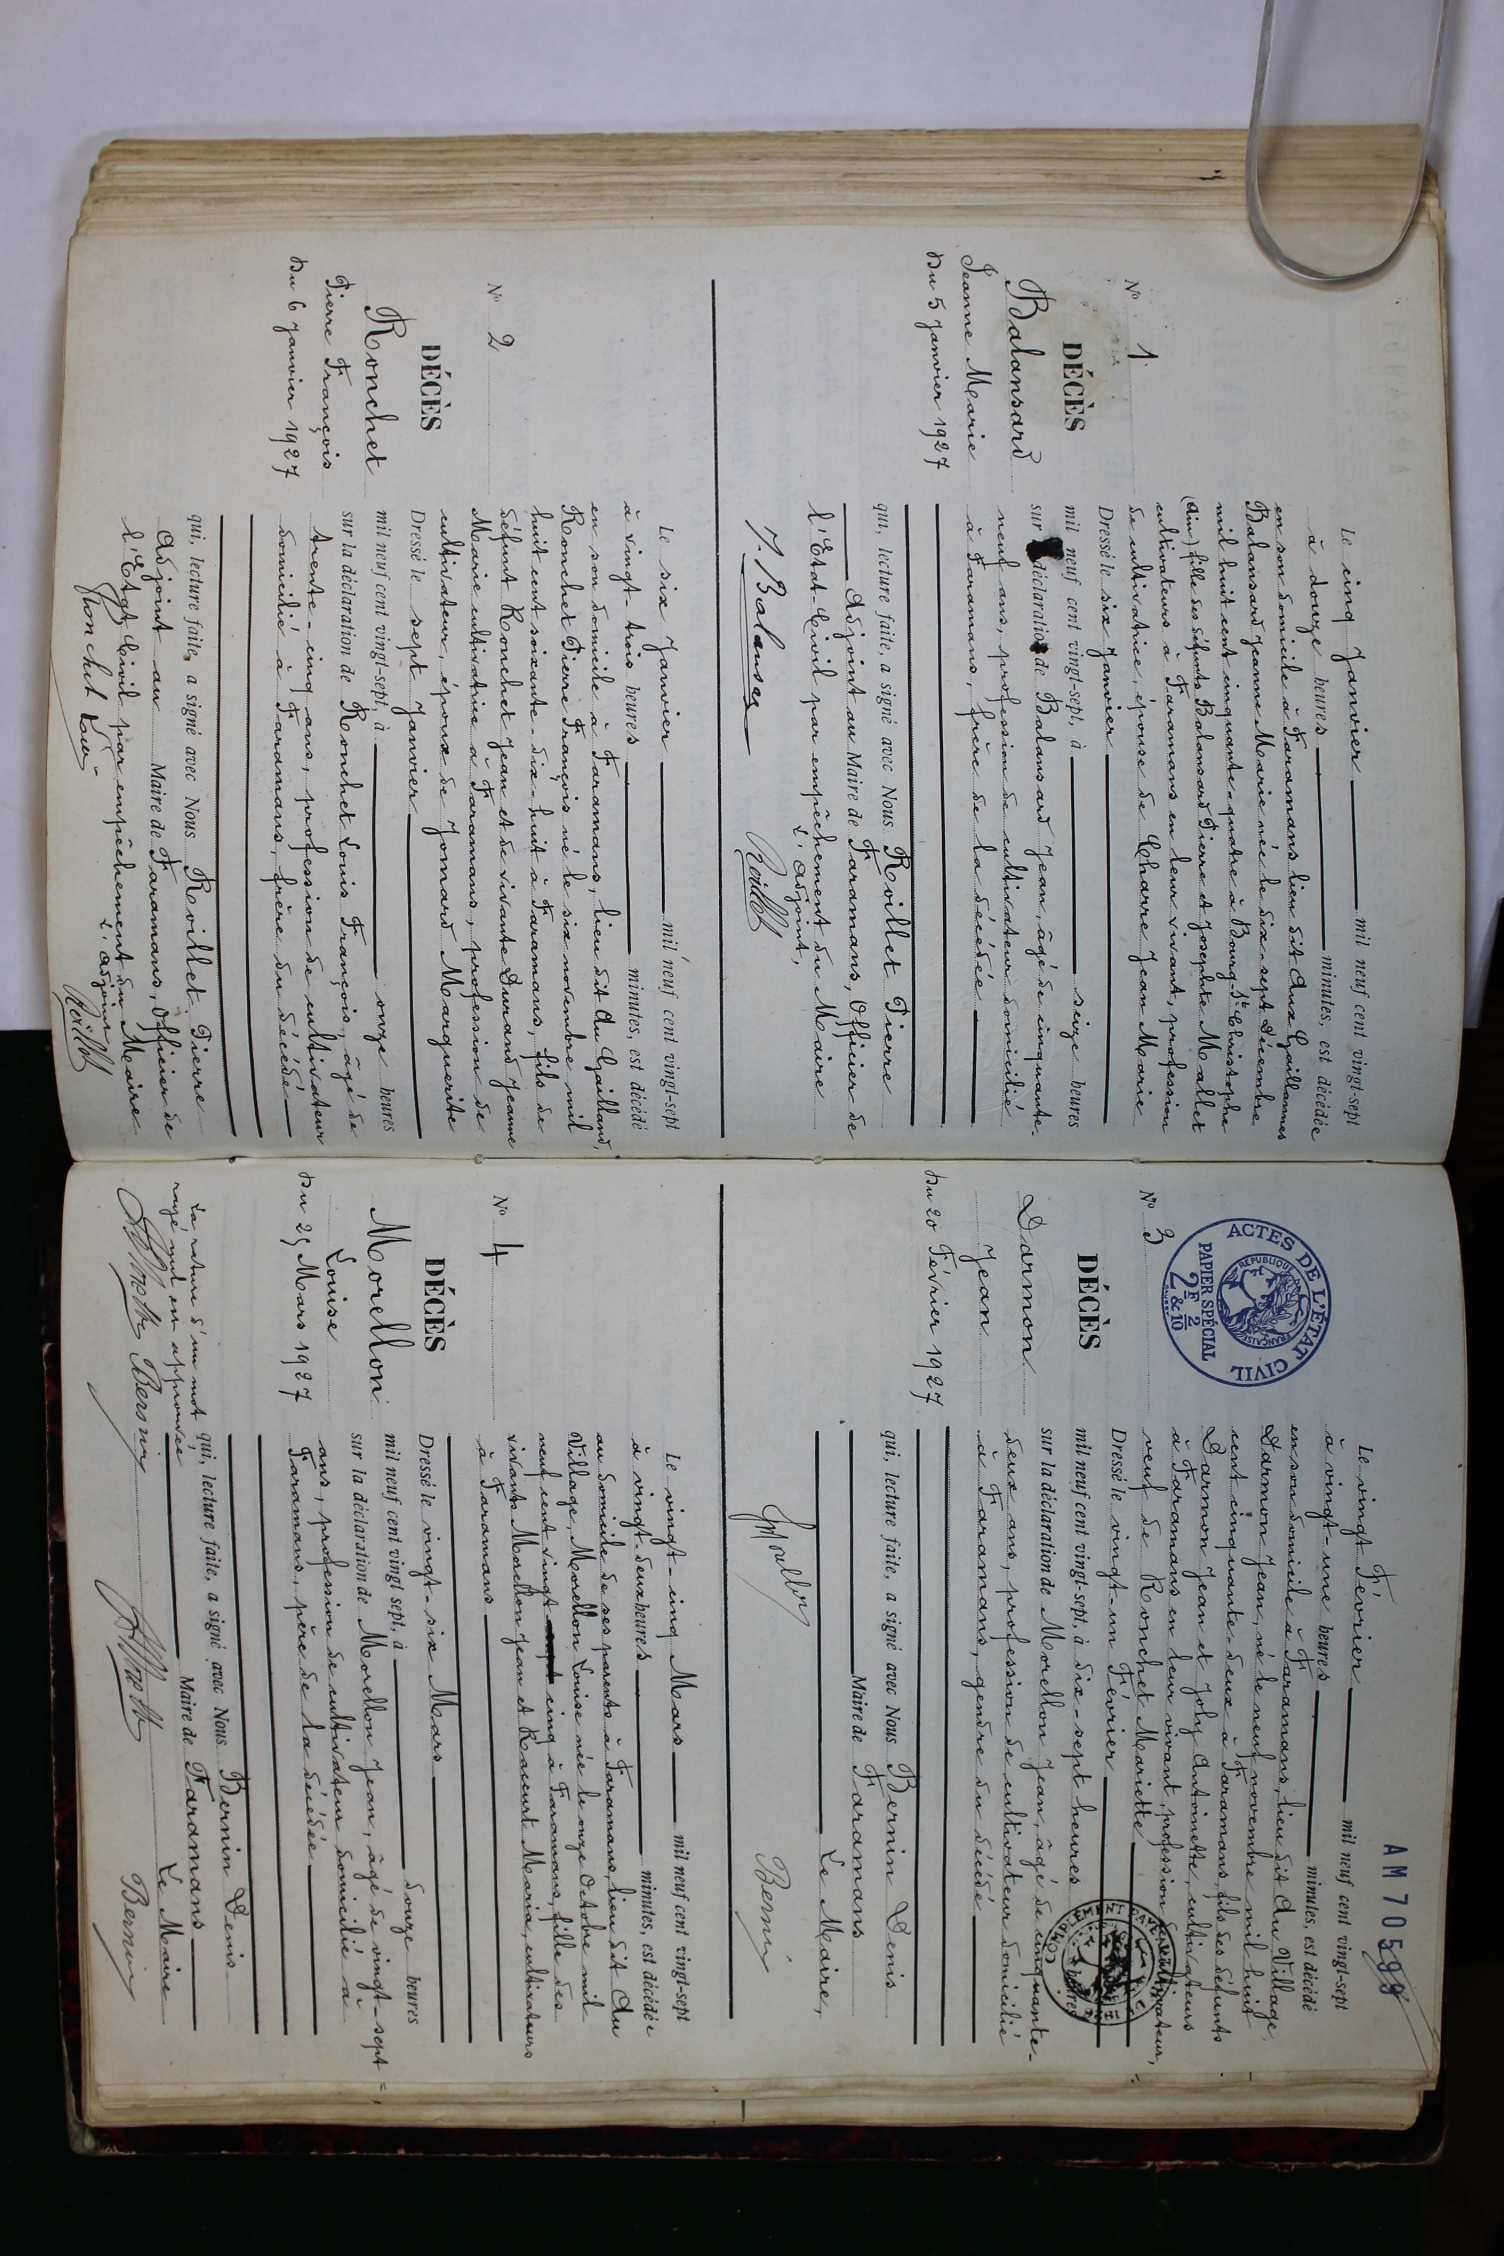 N° 1
DÉCÈS
Balansard
Jeanne Marie
Du 5 Janvier 1927
Le cinq Janvier mil neuf cent vingt-sept
à douze heures minutes, est décédée
en son domicile à Faramans, lieu dit Aux Gaillannes
Balansard Jeanne Marie née le dix-sept Décembre
mil huit cent cinquante-quatre à Bourg-St-Christophe
(Ain) fille des défunts Balansard Pierre et Josephte Mallet
cultivateurs à Faramans en leur vivant, profession
de cultivatrice, épouse de Charre Jean Marie
Dressé le six Janvier
mil neuf cent vingt-sept, à seize heures
sur déclaration de Balansard Jean, âgé de cinquante-
neuf ans, profession de cultivateur domicilié
à Faramans, frère de la décédée
qui, lecture faite, a signé avec Nous Roillet Pierre
Adjoint au Maire de Faramans, Officier de
l'Etat-Civil par empêchement du Maire
L'adjoint,
J. Balansard Roillet
N° 2
DÉCÈS
Ronchet
Pierre François
Du 6 Janvier 1927
Le six Janvier mil neuf cent vingt-sept
à vingt-trois heures minutes, est décédé
en son domicile à Faramans, lieu dit Au Gailland,
Ronchet Pierre François né le six novembre mil
huit cent soixante-dix-huit à Faramans, fils de
défunt Ronchet Jean et de vivante Durand Jeanne
Marie cultivatrice à Faramans, profession de
cultivateur, époux de Jomard Marguerite
Dressé le sept Janvier
mil neuf cent vingt-sept, à onze heures
sur la déclaration de Ronchet Louis François, âgé de
trente-cinq ans, profession de cultivateur
domicilié à Faramans, frère du décédé
qui, lecture faite, a signé avec Nous Roillet Pierre
Adjoint au Maire de Faramans, Officier de
l'Etat Civil par empêchement du Maire
L'adjoint
Ronchet Louis Roillet
AM 70599
ACTES DE L'ÉTAT CIVIL
RÉPUBLIQUE FRANÇAISE
PAPIER SPÉCIAL
2F 2
2 &10
N° 3
DÉCÈS
Darmon
Jean
Du 20 Février 1927
Le vingt Février mil neuf cent vingt-sept
à vingt-une heures minutes, est décédé
en son domicile à Faramans, lieu dit Au Village,
Darmon Jean, né le neuf novembre mil huit
cent cinquante-deux à Faramans, fils des défunts
Darmon Jean et Joly Antoinette, cultivateurs
à Faramans en leur vivant, profession de cultivateur,
veuf de Ronchet Mariette
Dressé le vingt-un Février
mil neuf cent vingt-sept, à dix-sept heures
sur la déclaration de Morellon Jean, âgé de cinquante-
deux ans, profession de cultivateur domicilié
à Faramans, gendre du décédé
qui, lecture faite, a signé avec Nous Bernin Denis
Maire de Faramans
Le Maire,
Bernin
N° 4
DÉCÈS
Morellon
Louise
Du 25 Mars 1927
Le vingt-cinq Mars mil neuf cent vingt-sept
à vingt-deux heures minutes, est décédée
au domicile de ses parents à Faramans, lieu dit Au
Village, Morellon Louise née le onze Octobre mil
neuf cent vingt cinq à Faramans, fille des
vivants Morellon Jean et Racurt Maria, cultivateurs
à Faramans
Dressé le vingt-six Mars
mil neuf cent vingt sept, à douze heures
sur la déclaration de Morellon Jean, âgé de vingt-sept
ans, profession de cultivateur domicilié à
Faramans, père de la décédée
qui, lecture faite, a signé avec Nous Bernin Denis
Maire de Faramans
Le Maire
La rature d'un mot
rayé nul en approuvée
Bernin
Bernin